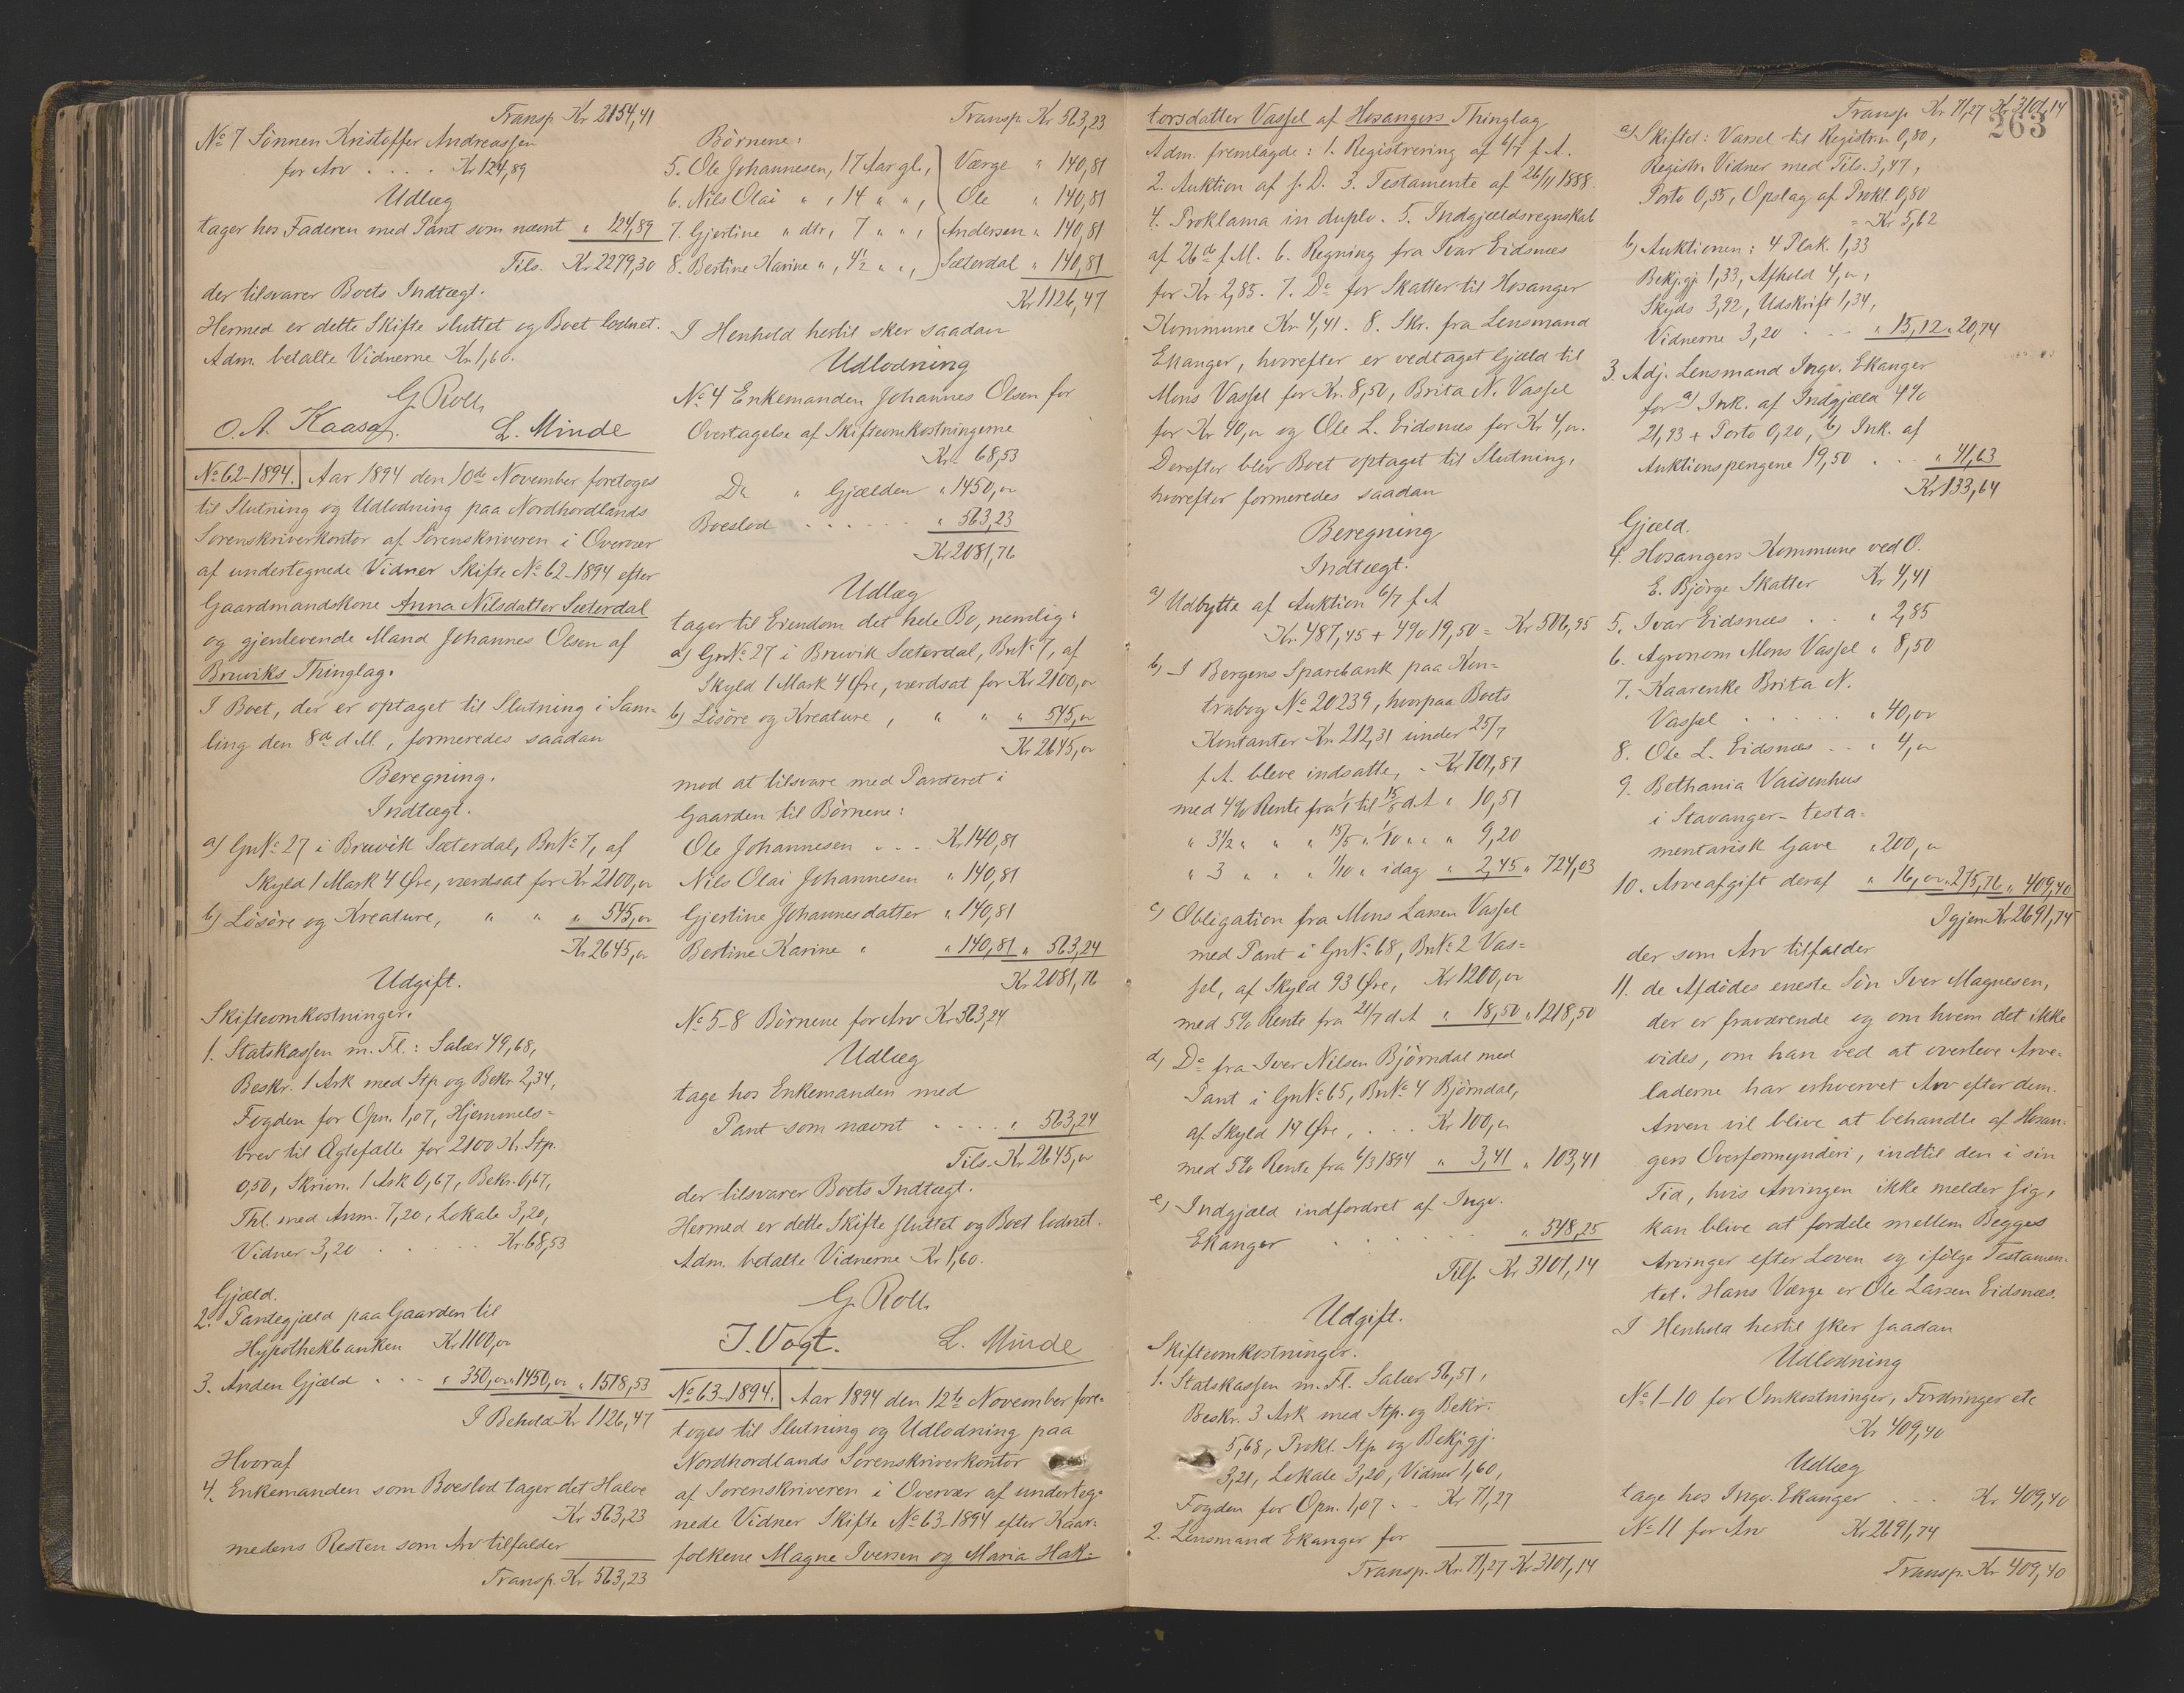 Transp. Kr 2154,41
No 7 Sönnen Kristoffer Andreassen
for Arv . . . . Kr 124,89
Udlæg
tager hos Faderen med Pant som nævnt " 124,89
Tils. Kr 2279,30
der tilsvarer Boets Indtægt.
Hermed er dette Skifte sluttet og Boet lodnet.
Adm. betalte Vidnerne Kr. 1,60.
G. Roll
O. A. Kaasa. L. Minde
No 62-1894. Aar 1894 den 10de November foretoges
til Slutning og Udlodning paa Nordhordlands
Sorenskriverkontor af Sorenskriveren i Overvær
af undertegnede Vidner Skifte No 62-1894 efter
Gaardmandskone Anna Nilsdatter Sæterdal
og gjenlevende Mand Johannes Olsen af
Bruviks Thinglag.
I Boet, der er optaget til Slutning i Sam-
ling den 8de d. M., formeredes saadan
Beregning.
Indtægt.
a) Gn No 27 i Bruvik Sæterdal, Bn No 7, af
Skyld 1 Mark 4 Øre, værdsat for Kr 2100,00
b) Lösöre og Kreature, " " " 545,00
Kr 2645,00
Udgift.
Skifteomkostninger.
1. Statskassen m. Fl.: Salær 49,68,
Beskr. 1 Ark med Stp og Bekr 2,34,
Fogden for Opn. 1,07, Hjemmels-
brev til Ægtefælle for 2100 Kr. Stp.
0,50, Skrivn. 1 Ark 0,67, Bekr. 0,67,
Thl. med Anm. 7,20, Lokale 3,20,
Vidner 3,20 . . . . . Kr. 68,53
Gjæld.
2. Pantegjæld paa Gaarden til
Hypothekbanken Kr 1100,00
3. Anden Gjæld . . . " 350,00 " 1450,00 " 1518,53
I Behold Kr 1126,47
Hvoraf
4. Enkemanden som Boeslod tager det Halve
Kr 563,23
medens Resten som Arv tilfalder
Transp. Kr 563,23
Transp. Kr 563,23
Börnene:
5. Ole Johannesen, 17 Aar gl., Værge " 140,81
6. Nils Olai " , 14 " " , Ole " 140,81
7. Gjertine " dtr, 7 " " , Andersen " 140,81
8. Bertine Karine " , 4½ " " , Sæterdal " 140,81
Kr 1126,47
I Henhold hertil sker saadan
Udlodning
No 4 Enkemanden Johannes Olsen for
Overtagelse af Skifteomkostningerne
Kr. 68,53
Do " Gjælden " 1450,00
Boeslod . . . . . . " 563,23
Kr 2081,76
Udlæg
tager til Eiendom det hele Bo, nemlig:
a) Gn No 27 i Bruvik Sæterdal, Bn No 7, af
Skyld 1 Mark 4 Øre, værdsat for Kr 2100,00
b) Lösöre og Kreature, " " " 545,00
Kr 2645,00
mod at tilsvare med Panteret i
Gaarden til Börnene:
Ole Johannesen . . . Kr 140,81
Nils Olai Johannesen " 140,81
Gjertine Johannesdatter " 140,81
Bertine Karine " " 140,81 " 563,24
Kr 2081,76
No 5-8 Börnene for Arv Kr 563,24
Udlæg
tage hos Enkemanden med
Pant som nævnt . . . . " 563,24
Tils. Kr 2645,00
der tilsvarer Boets Indtægt.
Hermed er dette Skifte sluttet og Boet lodnet.
Adm. betalte Vidnerne Kr 1,60.
G. Roll.
J. Vogt. L. Minde
No 63-1894. Aar 1894 den 12te November fore-
toges til Slutning og Udlodning paa
Nordhordlands Sorenskriverkontor
af Sorenskriveren i Overvær af underteg-
nede Vidner Skifte No 63-1894 efter Kaar-
folkene Magne Iversen og Maria Hak-
torsdatter Vassel af Hosangers Thinglag
Adm. fremlagde: 1. Registrering af 6/7 f. A.
2. Auktion af s. D. 3. Testamente af 26/11 1888.
4. Proklama in duplo. 5. Indgjældsregnskab
af 26de f. M. 6. Regning fra Ivar Eidsnæs
for Kr 2,85. 7. Do for Skatter til Hosanger
Kommune Kr 4,41. 8. Skr. fra Lensmand
Ekanger, hvorefter er vedtaget Gjæld til
Mons Vassel for Kr. 8,50, Brita N. Vassel
for Kr 40,00 og Ole L. Eidsnæs for Kr 4,00.
Derefter blev Boet optaget til Slutning,
hvorefter formeredes saadan
Beregning
Indtægt.
a) Udbytte af Auktion 6/7 f. A
Kr. 487,45 + 4% 19,50 = Kr 506,95
b) I Bergens Sparebank paa Kon-
trabog No 20239, hvorpaa Boets
Kontanter Kr. 212,31 under 25/7
f. A. bleve indsatte, . Kr 701,87
med 4% Rente fra 1/1 til 15/5 d. A " 10,51
" 3½ " " " 15/5 " 1/10 " " " 9,20
" 3 " " " 1/10 " idag " 2,45 " 724,03
c) Obligation fra Mons Larsen Vassel
med Pant i Gn No 68, Bn No 2 Vas-
sel, af Skyld 93 Øre, Kr 1200,00
med 5% Rente fra 21/7 d. A " 18,50 " 1218,50
d) Do fra Iver Nilsen Björndal med
Pant i Gn No 65, Bn No 4 Björndal,
af Skyld 14 Øre, . . . Kr 100,00
med 5% Rente fra 6/3 1894 " 3,41 " 103,41
e) Indgjæld indfordret af Ingv.
Ekanger . . . . . . " 548,25
Tils. Kr 3101,14
Udgift.
Skifteomkostninger.
1. Statskassen m. Fl. Salær 56,51,
Beskr. 3 Ark med Stp. og Bekr.
5,68, Prokl. Stp og Bekjgj.
3,21, Lokale 3,20, Vidner 1,60,
Fogden for Opn. 1,07 . . Kr 71,27
2. Lensmand Ekanger for
Transp. Kr. 71,27 Kr 3101,14
Transp Kr 71,27 Kr 3101,14
263
a) Skiftet: Varsel til Registrin 0,80,
Registr. Vidner med Tils. 3,47,
Porto 0,55, Opslag af Prokl. 0,80
= Kr 5,62
b) Auktionen: 4 Plak. 1,33
Bekjgj. 1,33, Afhold 4,00,
Skyds 3,92, Udskrift 1,34,
Vidnerne 3,20 . . . " 15,12 " 20,74
3. Adj. Lensmand Ingv. Ekanger
for a) Ink. af Indgjæld 4%
21,93 + Porto 0,20, b) Ink. af
Auktionspengene 19,50 . . " 41,63
Kr 133,64
Gjæld.
4. Hosangers Kommune ved O.
E. Björge Skatter Kr 4,41
5. Ivar Eidsnæs . . " 2,85
6. Agronom Mons Vassel " 8,50
7. Kaarenke Brita N.
Vassel . . . . . " 40,00
8. Ole L. Eidsnæs . . " 4,00
9. Bethania Vaisenhus
i Stavanger - testa-
mentarisk Gave " 200,00
10. Arveafgift deraf " 16,00 " 275,76 " 409,40
Igjen Kr 2691,74
der som Arv tilfalder
11. de Afdödes eneste Sön Iver Magnesen,
der er fraværende og om hvem det ikke
vides, om han ved at overleve Arve-
laderne har erhvervet Arv efter dem.
Arven vil blive at behandle af Hosan-
gers Overformynderi, indtil den i sin
Tid, hvis Arvingen ikke melder sig,
kan blive at fordele mellem Begges
Arvinger efter Loven og ifölge Testamen-
tet. Hans Værge er Ole Larsen Eidsnæs.
I Henhold hertil sker saadan
Udlodning
No 1-10 for Omkostninger, Fordringer etc
Kr 409,40
Udlæg
tage hos Ingv. Ekanger . . . Kr 409,40
No 11 for Arv Kr 2691,74
Transp. Kr 409,40